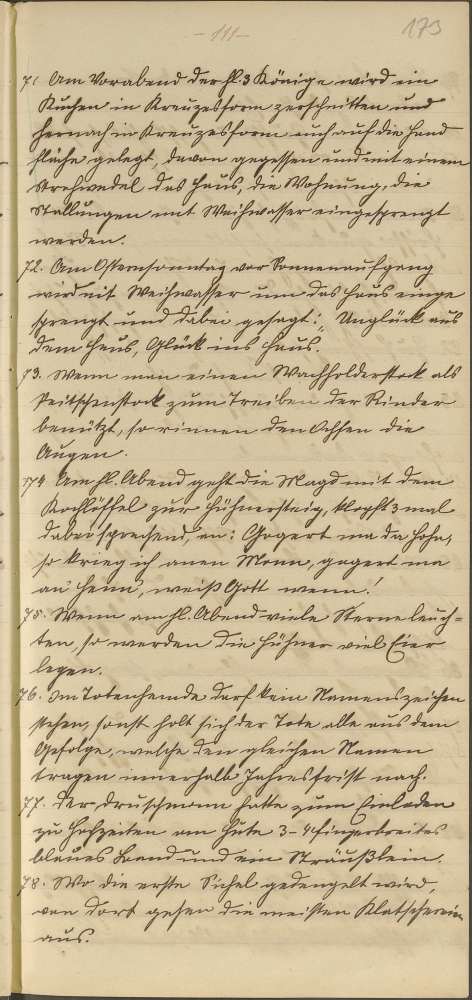 -111-
173
71. Am Vorabend der hl. 3 Könige wird ein
Kuchen in Kreuzesform zerschnitten und
hernach in Kreuzesform auch auf die Hand
fläche gelegt, davon gegessen und mit einem
Strohwedel das Haus, die Wohnung, die
Stallungen mit Weihwasser eingesprengt
werden.
72. Am Ostersonntag vor Sonnenaufgang
wird mit Weihwasser um das Haus einge
sprengt und dabei gesagt: „Unglück aus
dem Haus, Glück ins Haus.
73. Wenn man einen Wachholderstock als
Peitschenstock zum Treiben der Rinder
benützt, so rinnen den Ochsen die
Augen.
174 Am hl. Abend geht die Magd mit dem
Kochlöffel zur Hühnersteig, klopft 3 mal
dabei sprechend, an: Gogert ma da Hohn,
so krieg ich anen Monn, gogert ma
an' Henn', weiß Gott wenn!
75. Wenn am hl. Abend viele Sterne leuch-
ten, so werden die Hühner viel Eier
legen.
76. Im Totenhemde darf kein Namenszeichen
stehen, sonst holt sich der Tote alle aus dem
Gefolge, welche den gleichen Namen
tragen innerhalb Jahresfrist nach.
77. Der Druschmann hatte zum Einladen
zu Hochzeiten am Hute 3-4 fingerbreites
blaues Band und ein Sträußlein.
78. Wo die erste Sichel gedengelt wird,
von dort gehen die meisten Klatschereien
aus.